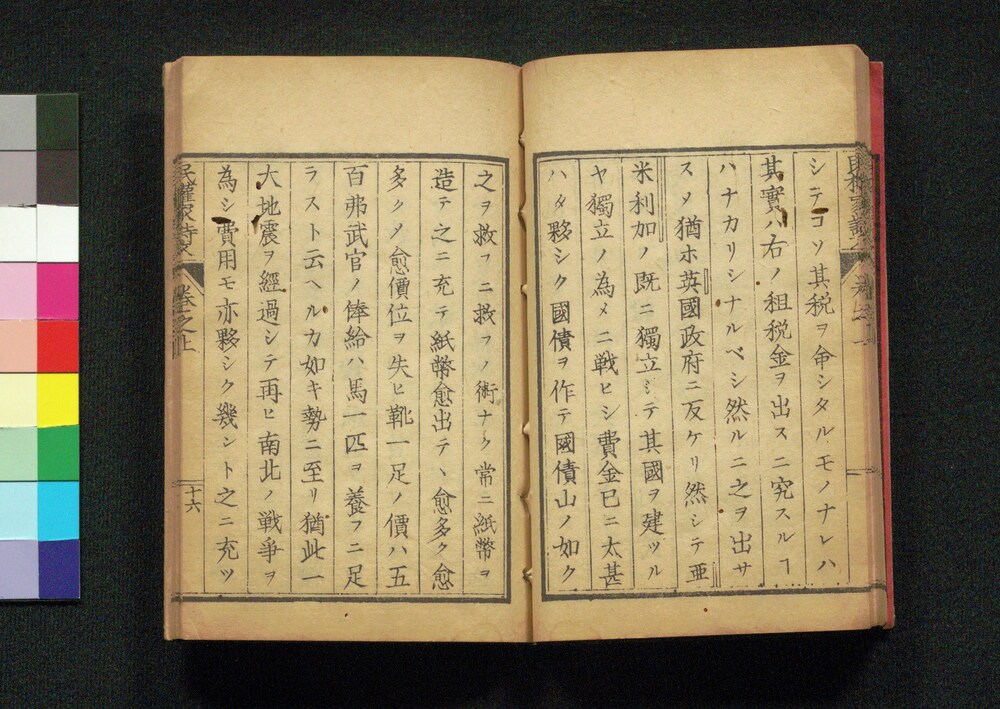 シテコソ其税ヲ命シタルモノナレハ
其實ハ右ノ租税金ヲ出スニ究スルヿ
ハナカリシナルベシ然ルニ之ヲ出サ
スメ猶ホ英國政府ニ反ケリ然シテ亜
米利加ノ既ニ獨立シテ其國ヲ建ツル
ヤ獨立ノ為メニ戦ヒシ費金已ニ太甚
ハタ夥シク國債ヲ作テ國債山ノ如ク
之ヲ救フニ救フノ術ナク常ニ紙幣ヲ
造テ之ニ充テ紙幣愈出テヽ愈多ク愈
多クメ愈價位ヲ失ヒ靴一足ノ價ハ五
百弗武官ノ俸給ハ馬一匹ヲ養フニ足
ラスト云ヘルカ如キ勢ニ至リ猶此一
大地震ヲ經過シテ再ヒ南北ノ戦爭ヲ
為シ費用モ亦夥シク幾ント之ニ充ツ
卷之上
十六